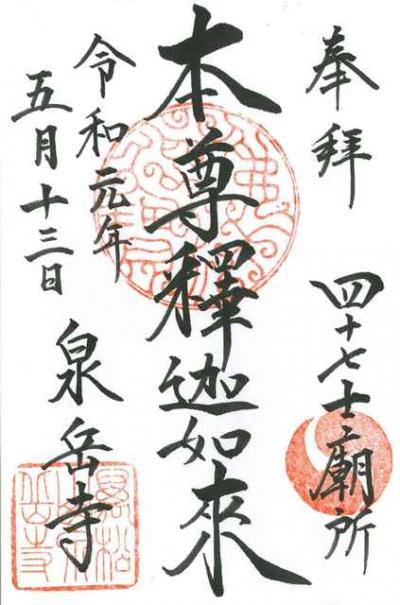 奉拝
四十七士廟所
本尊釋迦如來
令和元年
五月十三日
泉岳寺